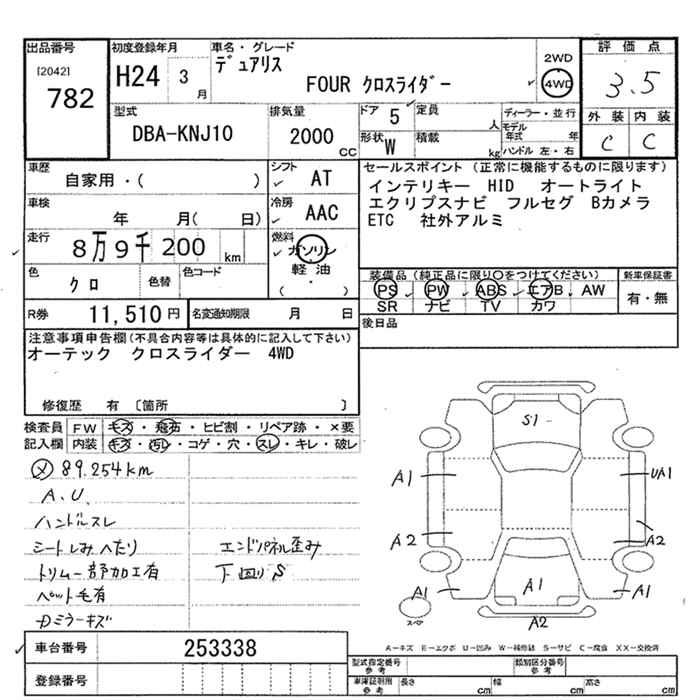 出品番号
[2042]
782
初度登録年月
H24 3月
車名・グレード
デュアリス
FOUR クロスライダー
2WD
4WD
評価点
3.5
外装 内装
C C
型式
DBA-KNJ10
排気量
2000 CC
ドア 5
定員 人
形状 W
積載 kg
ディーラー・並行
モデル年式 年
ハンドル 左・右
車歴
自家用・( )
シフト
AT
車検
年 月( 日)
冷房
AAC
走行
8万9千200 km
燃料
ガソリン
軽油
( ・ )
色
クロ
色替
色コード
R券 11,510円
名変通知期限 月 日
セールスポイント (正常に機能するものに限ります)
インテリキー HID オートライト
エクリプスナビ フルセグ Bカメラ
ETC 社外アルミ
装備品(純正品に限り○をつけてください)
PS PW ABS エアB AW
SR ナビ TV カワ
新車保証書
有・無
後日品
注意事項申告欄(不具合内容等は具体的に記入して下さい)
オーテック クロスライダー 4WD
修復歴 有 〔箇所 〕
検査員 FW キズ・飛石・ヒビ割・リペア跡・×要
記入欄 内装 キズ・汚レ・コゲ・穴・スレ・キレ・破レ
メ 89.254km
A.U.
ハンドルスレ
シートしみへたり
トリム一部加工有
ペット毛有
Dミラーキズ
エンドパネル歪み
下回りS
S1
A1
UA1
A2
A2
A1
A1
A1
A2
スペア
A−キズ E−エクボ U−凹み W−補修跡 S−サビ C−腐食 XX−交換済
車台番号 253338
登録番号
型式指定番号
参考
類別区分番号
参考
車庫証明用
参考
長さ cm
幅 cm
高さ cm